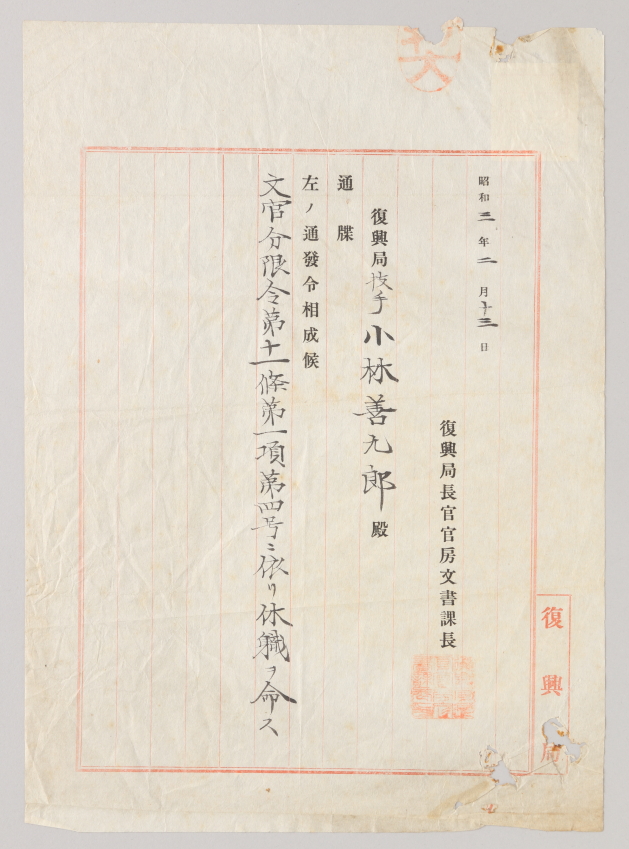 昭和三年二月十三日
復興局長官官房文書課長
復興局技手小林善九郎殿
通牒
左ノ通發令相成候
文官分限令第十一條第一項第四号ニ依リ休職ヲ命ス
復興局